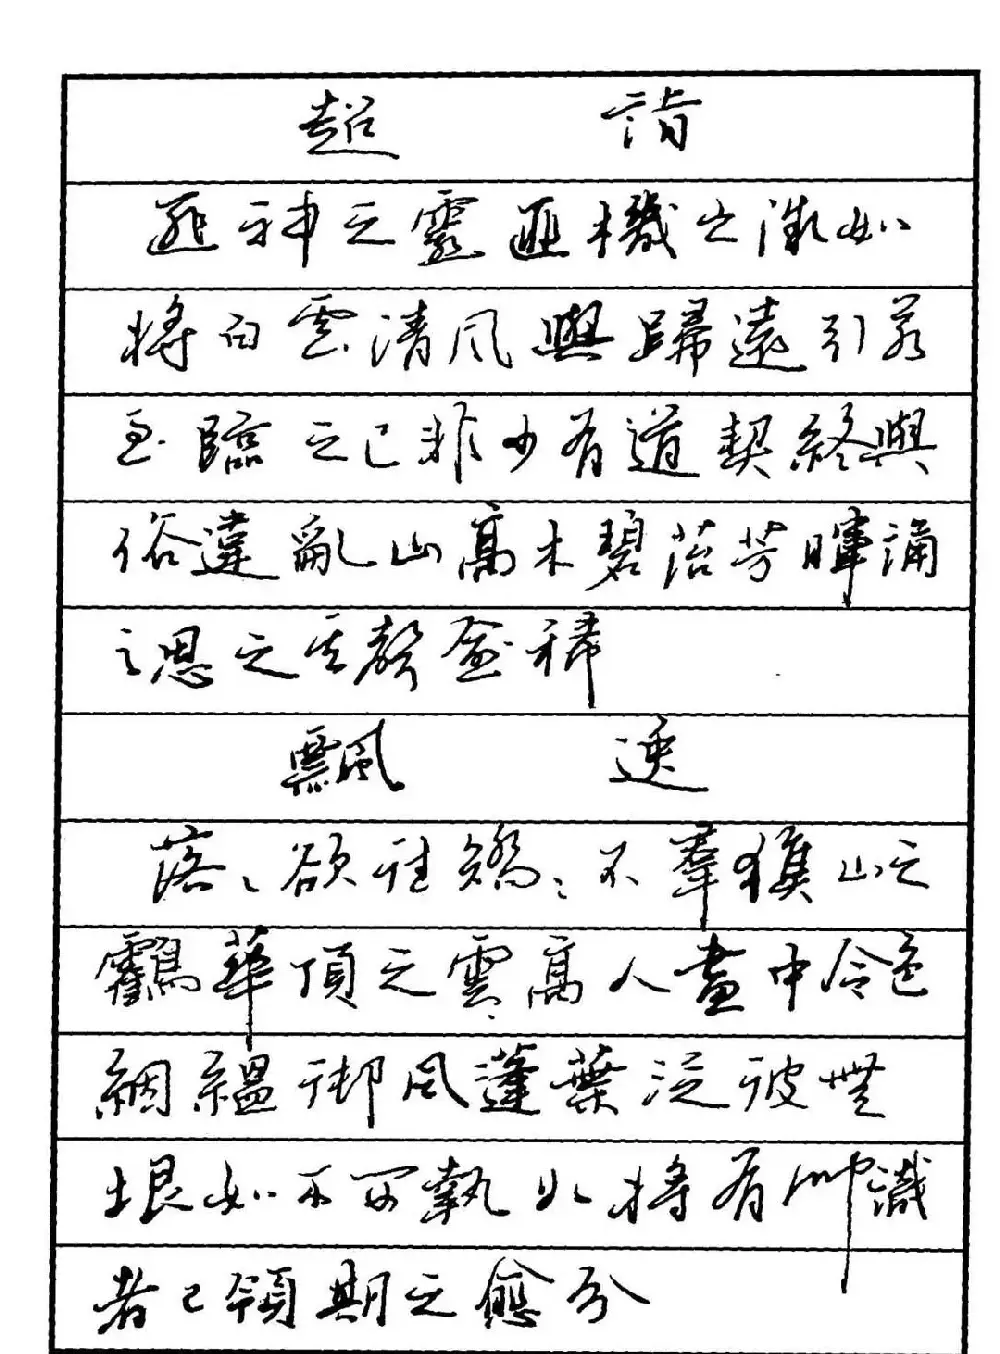 超 詣
匪神之靈匪機之微如
將白雲清風與歸遠引若
至臨之已非少有道契終與
俗違亂山高木碧苔芳暉誦
之思之其聲愈稀
飄 逸
落落欲往矯矯不羣緱山之
鶴華頂之雲高人畫中令色
絪縕御風蓬葉泛彼無
垠如不可執如將有聞識
者已領期之愈分